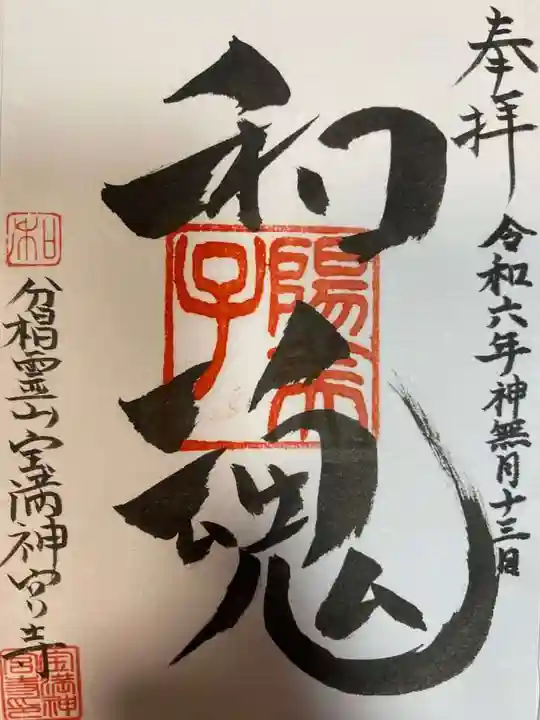 奉拝
令和六年神無月十三日
和魂
和
分楫霊山宝満神宮寺
宝満神宮寺印